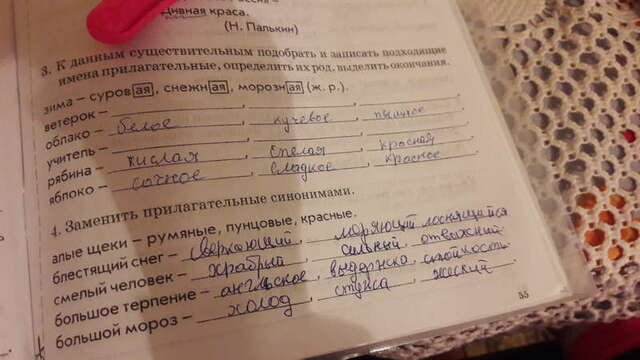 Дивная краса.
(Н. Палькин)
3. К данным существительным подобрать и записать подходящие
имена прилагательные, определить их род, выделить окончания.
зима – суровая, снежная, морозная (ж. р.).
ветерок –
облако – белое, кучевое, пышное
учитель –
рябина – кислая, спелая, красная
яблоко – сочное, сладкое, красное
4. Заменить прилагательные синонимами.
алые щеки – румяные, пунцовые, красные.
блестящий снег – сверкающий,
смелый человек – храбрый, сильный, отважный
большое терпение – ангельское,
большой мороз – холод, стужа,
55